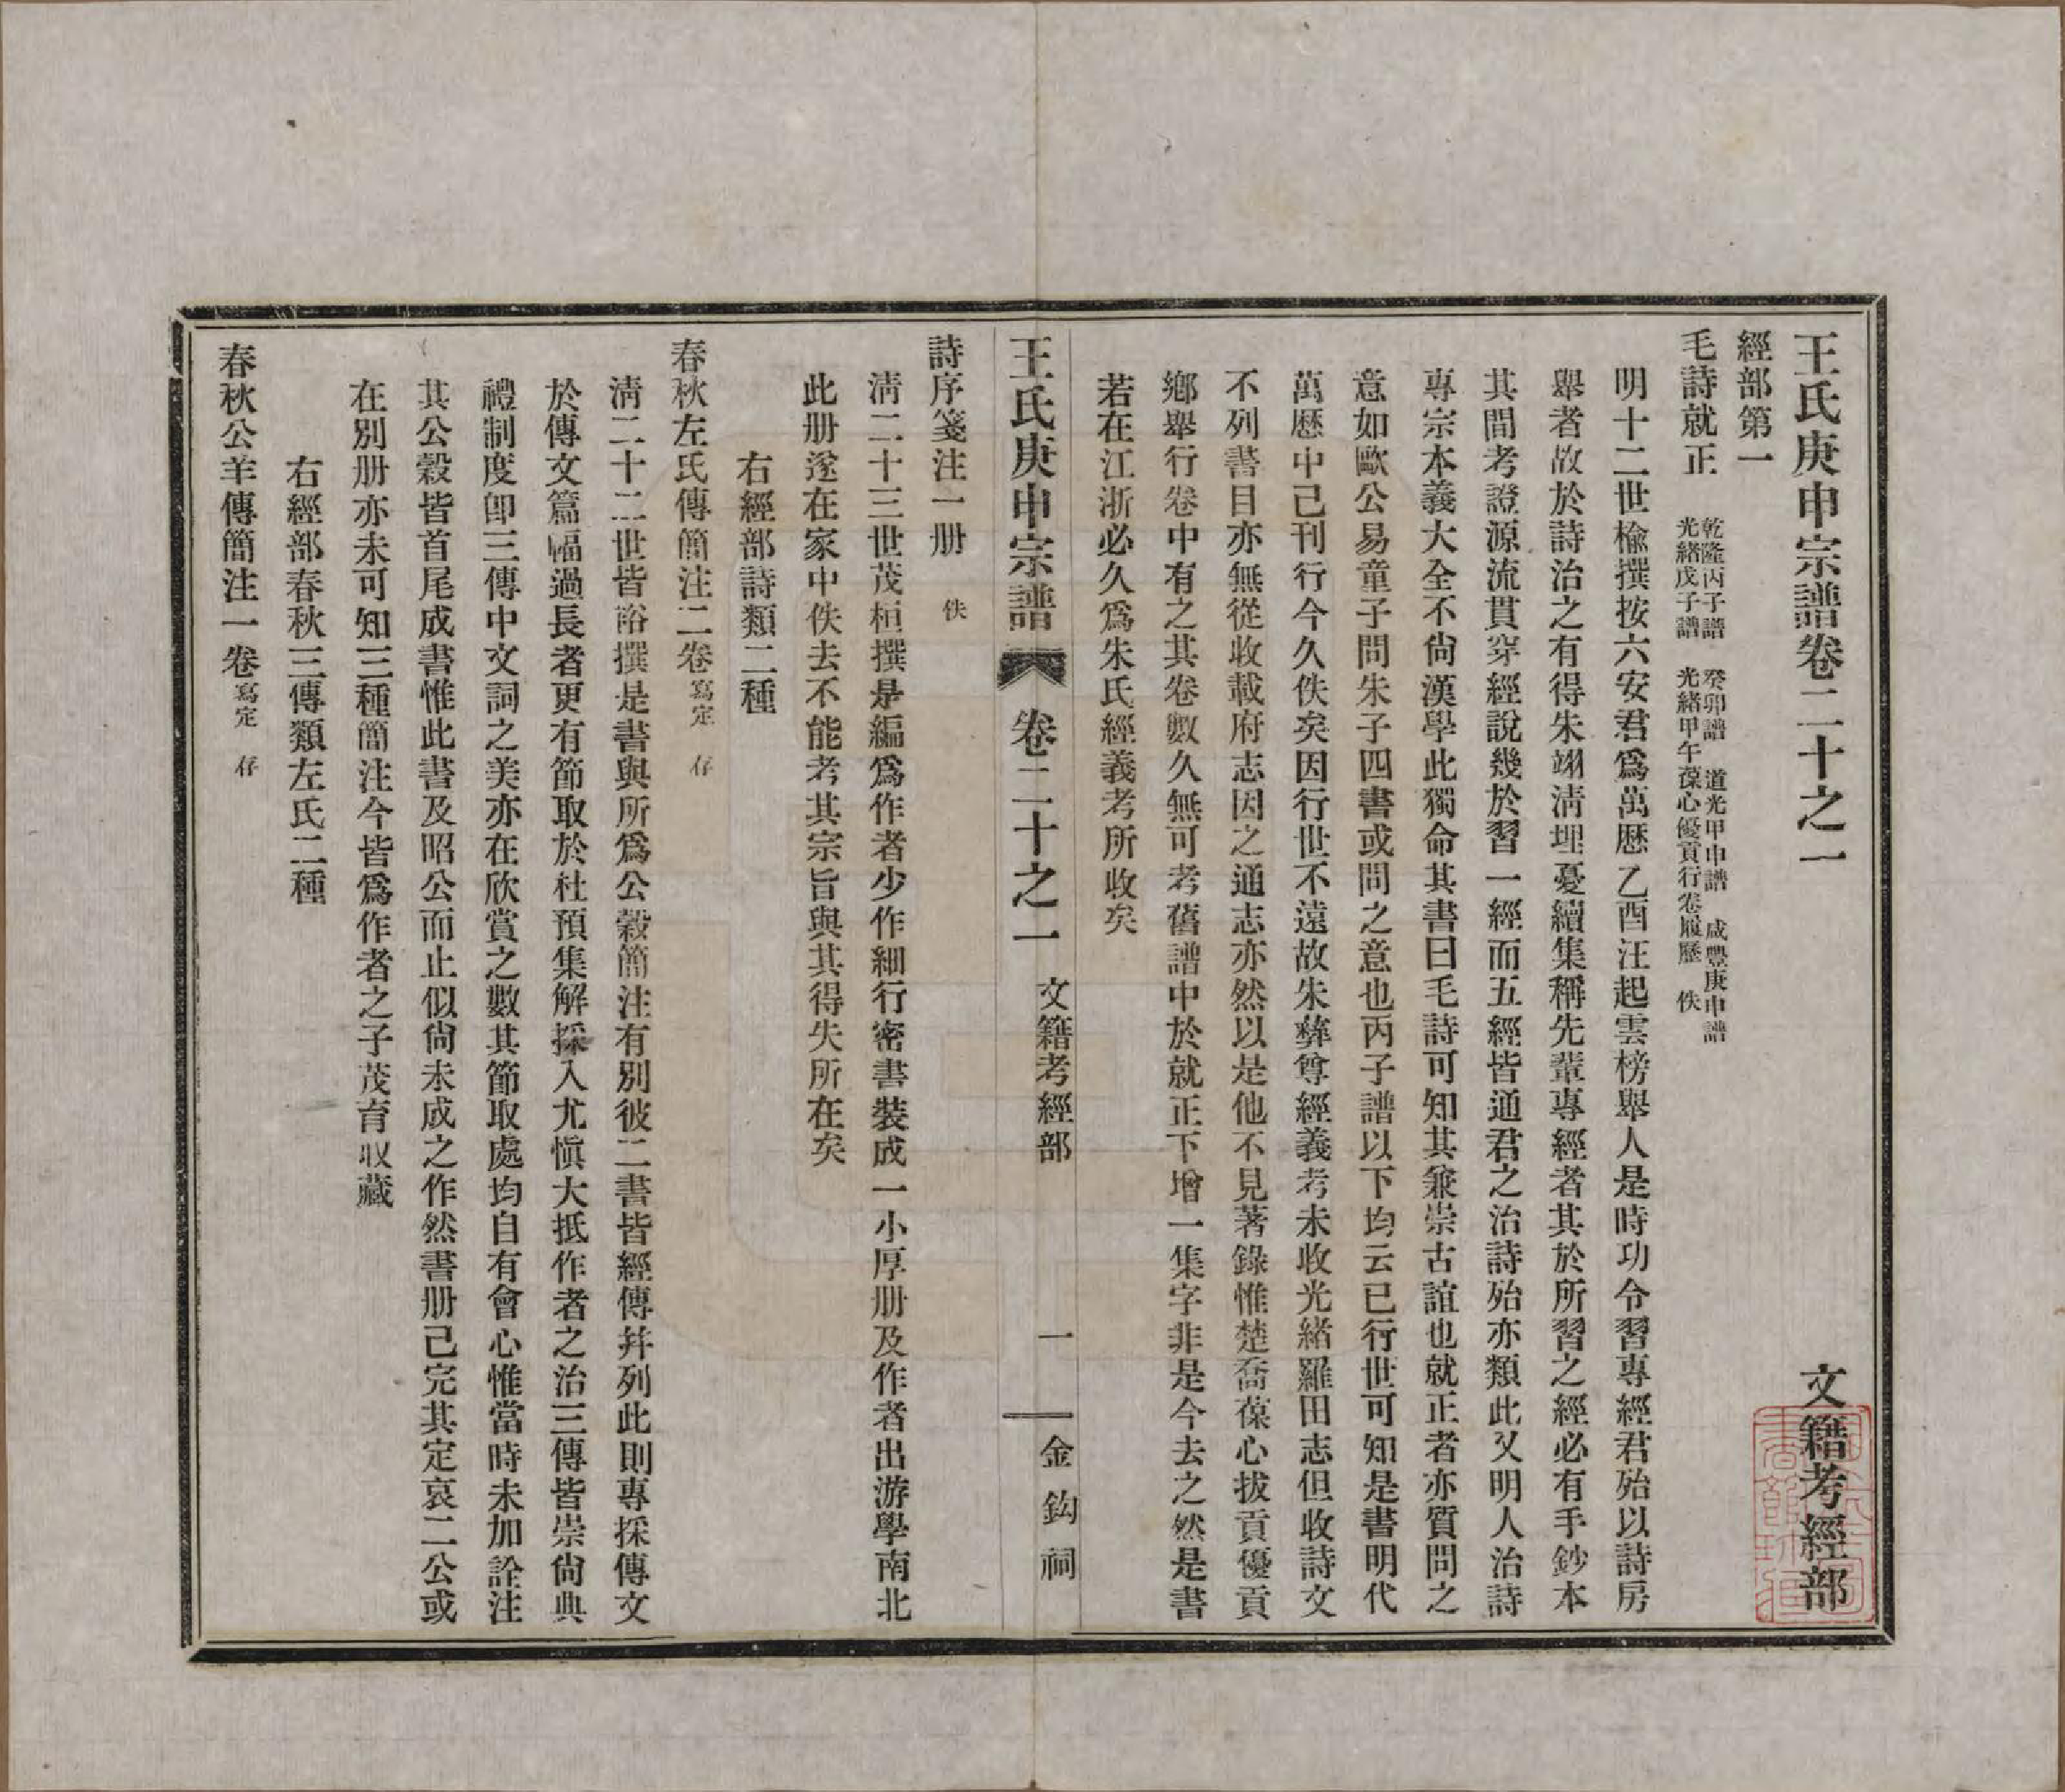 王氏庚申宗譜卷二十之一　文籍考經部
經部第一
毛詩就正　乾隆丙子譜　癸卯譜　道光甲申譜　咸豐庚申譜
光緒戊子譜　光緒甲午葆心優貢行卷履歷　佚
明十二世楡撰按六安君爲萬厯乙酉汪起雲榜舉人是時功令習專經君殆以詩房
舉者故於詩治之有得朱翊淸埋憂續集稱先輩專經者其於所習之經必有手鈔本
其間考證源流貫穿經說幾於習一經而五經皆通君之治詩殆亦類此又明人治詩
專宗本義大全不尙漢學此獨命其書曰毛詩可知其兼崇古誼也就正者亦質問之
意如歐公易童子問朱子四書或問之意也丙子譜以下均云已行世可知是書明代
萬厯中已刊行今久佚矣因行世不遠故朱彝尊經義考未收光緒羅田志但收詩文
不列書目亦無從收載府志因之通志亦然以是他不見著錄惟楚喬葆心拔貢優貢
鄉舉行卷中有之其卷數久無可考舊譜中於就正下增一集字非是今去之然是書
若在江浙必久爲朱氏經義考所收矣
王氏庚申宗譜　卷二十之一　文籍考經部　一　金鈎祠
詩序箋注一册　佚
淸二十三世茂桓撰是編爲作者少作細行密書裝成一小厚册及作者出游學南北
此册遂在家中佚去不能考其宗旨與其得失所在矣
右經部詩類二種
春秋左氏傳簡注二卷寫定　存
淸二十二世皆諮撰是書與所爲公榖簡注有別彼二書皆經傳幷列此則專採傳文
於傳文篇幅過長者更有節取於杜預集解採入尤愼大抵作者之治三傳皆崇尙典
禮制度卽三傳中文詞之美亦在欣賞之數其節取處均自有會心惟當時未加詮注
其公榖皆首尾成書惟此書及昭公而止似尙未成之作然書册已完其定哀二公或
在別册亦未可知三種簡注今皆爲作者之子茂育收藏
右經部春秋三傳類左氏二種
春秋公羊傳簡注一卷寫定　存